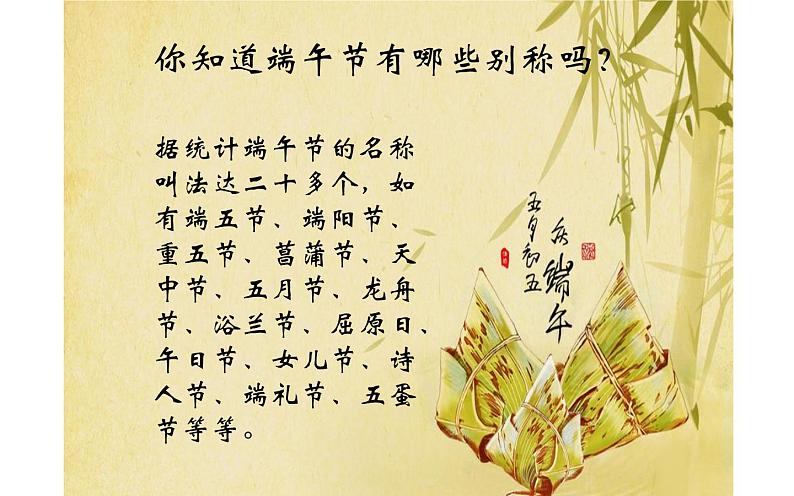 你知道端午节有哪些别称吗？
据统计端午节的名称
叫法达二十多个，如
有端五节、端阳节、
重五节、菖蒲节、天
中节、五月节、龙舟
节、浴兰节、屈原日、
午日节、女儿节、诗
人节、端礼节、五蛋
节等等。
五月初五
庆端午